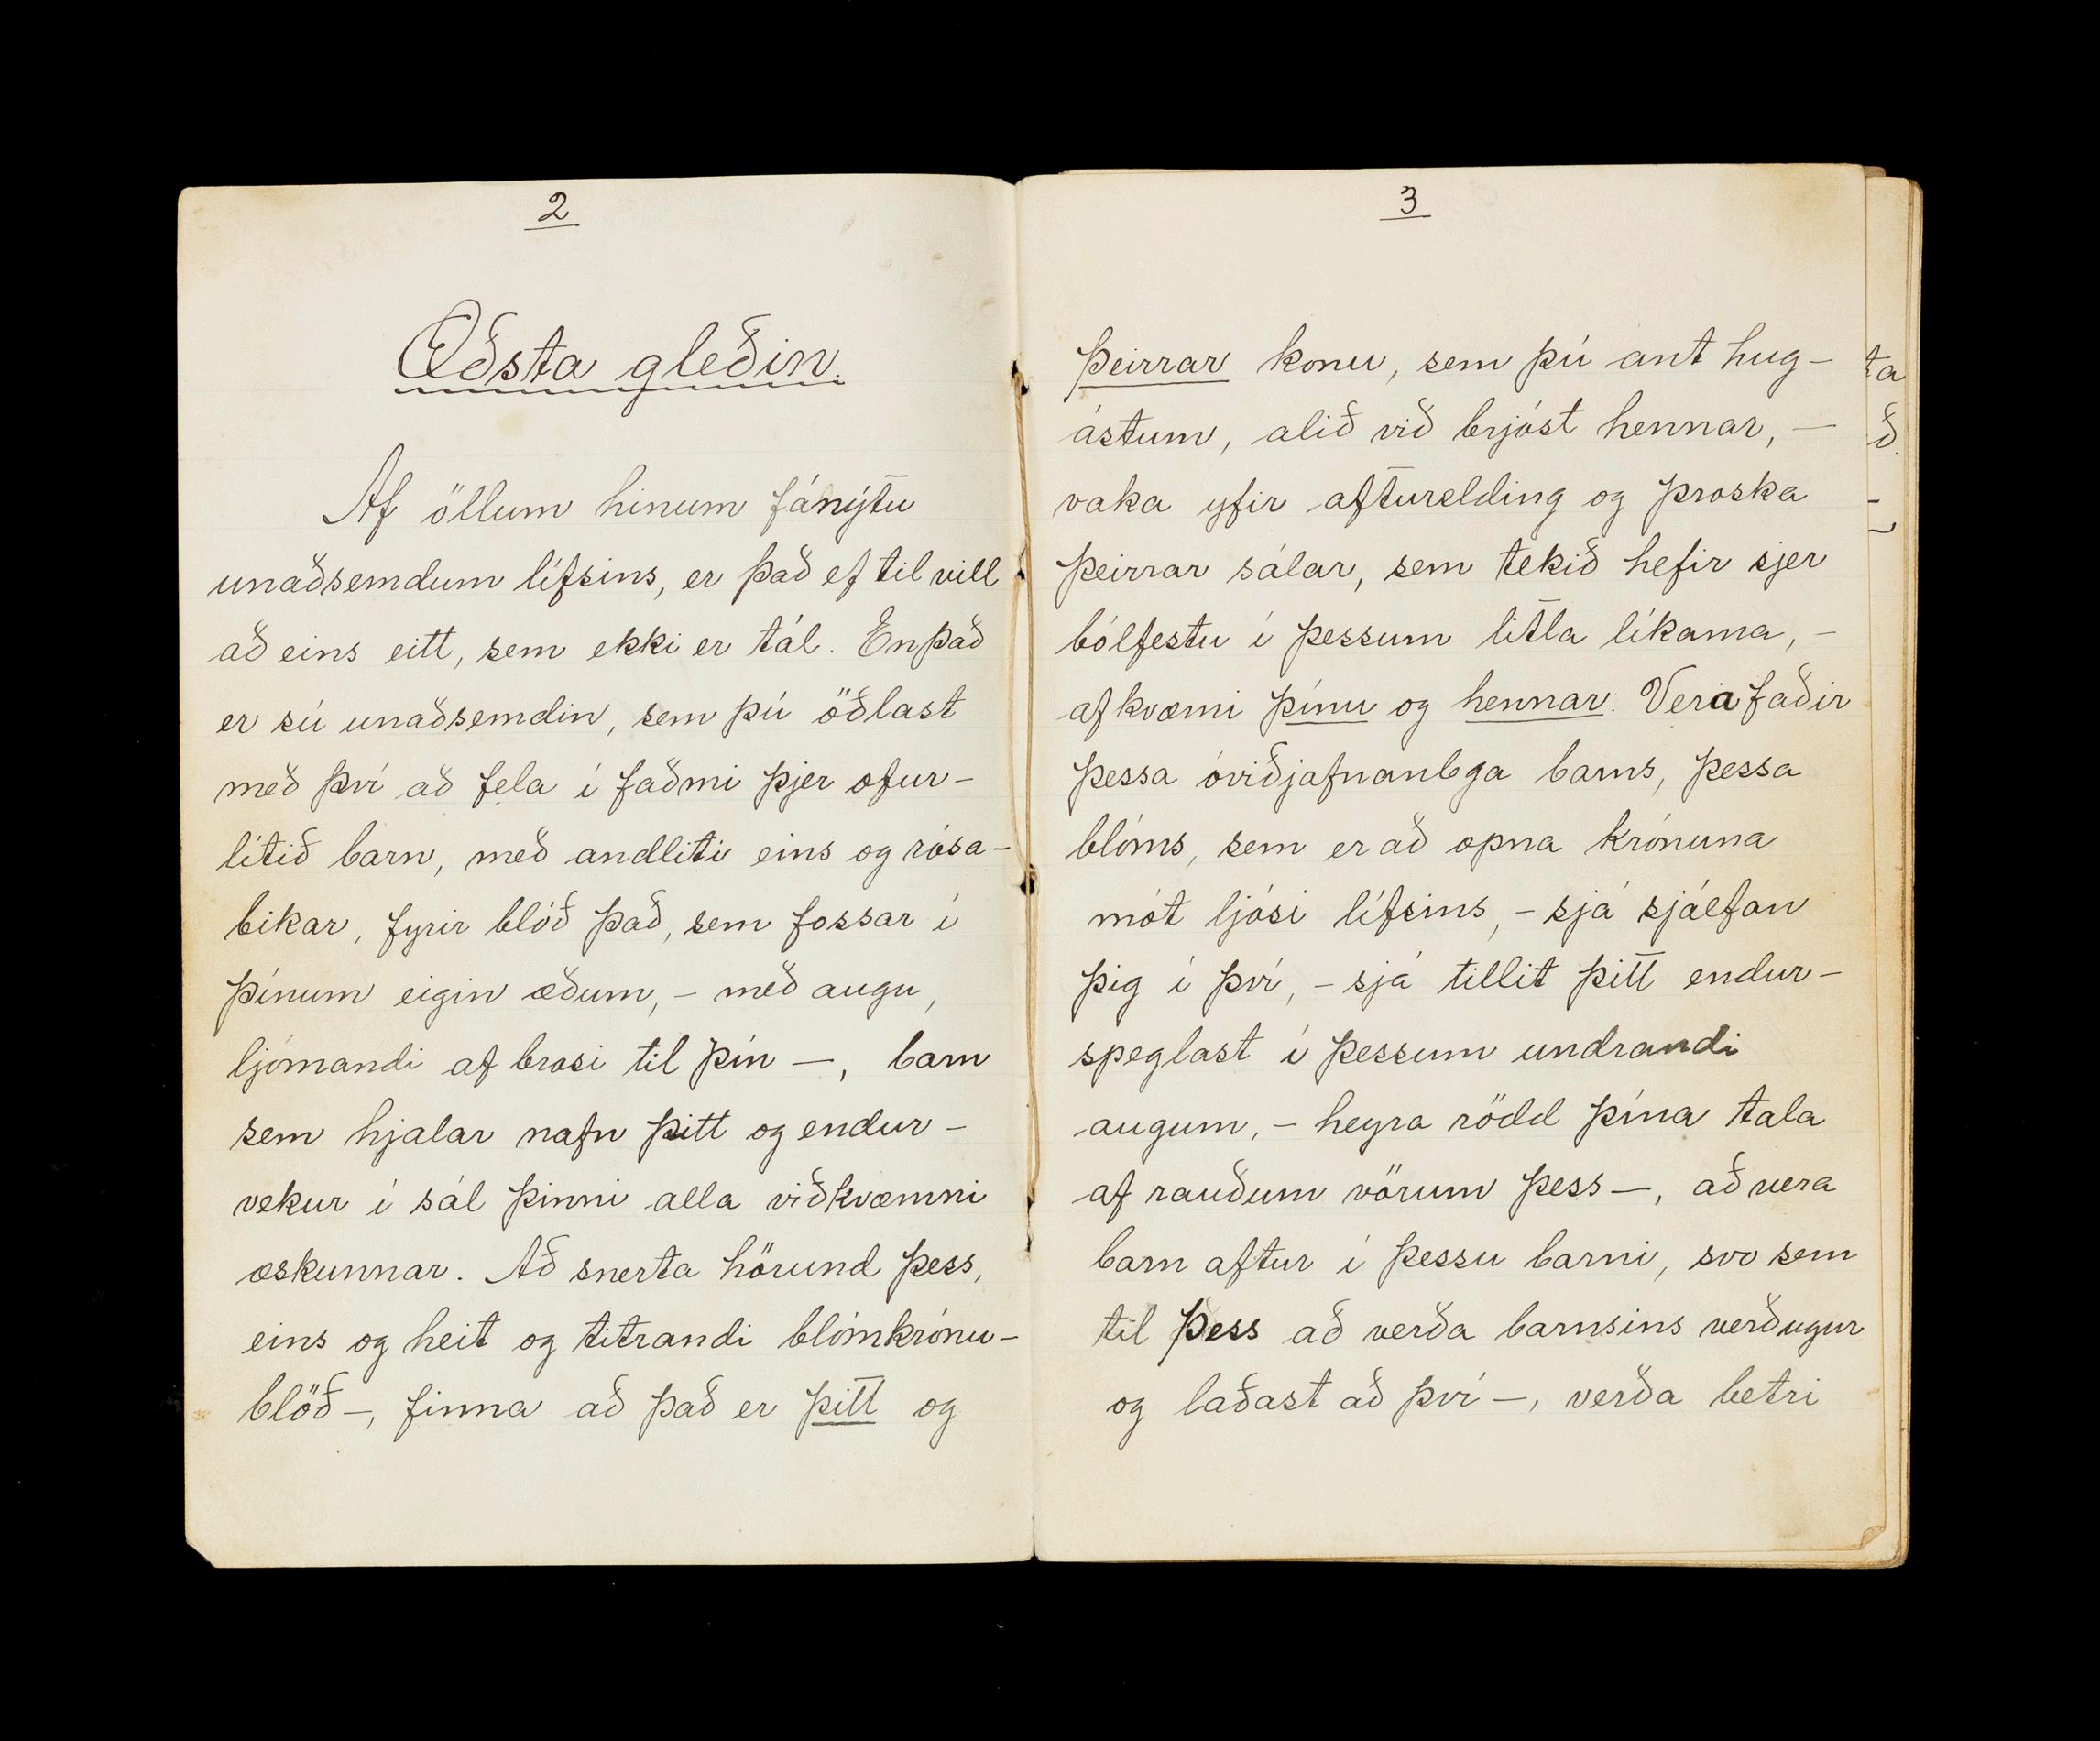 2
Æðsta gleðin.
Af öllum hinum fánýtu
unaðsemdum lífsins, er það ef til vill
að eins eitt, sem ekki er tál. En það
er sú unaðsemdin, sem þú öðlast
með því að fela í faðmi þjer ofur-
lítið barn, með andliti eins og rósa-
bikar, fyrir blóð það, sem fossar í
þínum eigin æðum, - með augu,
ljómandi af brosi til þín —, barn
sem hjalar nafn þitt og endur-
vekur í sál þinni alla viðkvæmni
æskunnar. Að snerta hörund þess,
eins og heit og titrandi blómkrónu-
blöð —, finna að það er þitt og
3
þeirrar konu, sem þú ant hug-
ástum, alið við brjóst hennar, —
vaka yfir afturelding og þroska
þeirrar sálar, sem tekið hefir sjer
bólfestu í þessum litla líkama, -
afkvæmi þínu og hennar. Vera faðir
þessa óviðjafnanlega barns, þessa
blóms, sem er að opna krónuna
mót ljósi lífsins, - sjá sjálfan
þig í því, - sjá tillit þitt endur-
speglast í þessum undrandi
augum, - heyra rödd þína tala
af rauðum vörum þess —, að vera
barn aftur í þessu barni, svo sem
til þess að verða barnsins verðugur
og laðast að því —, verða betri
ta
ð.
-